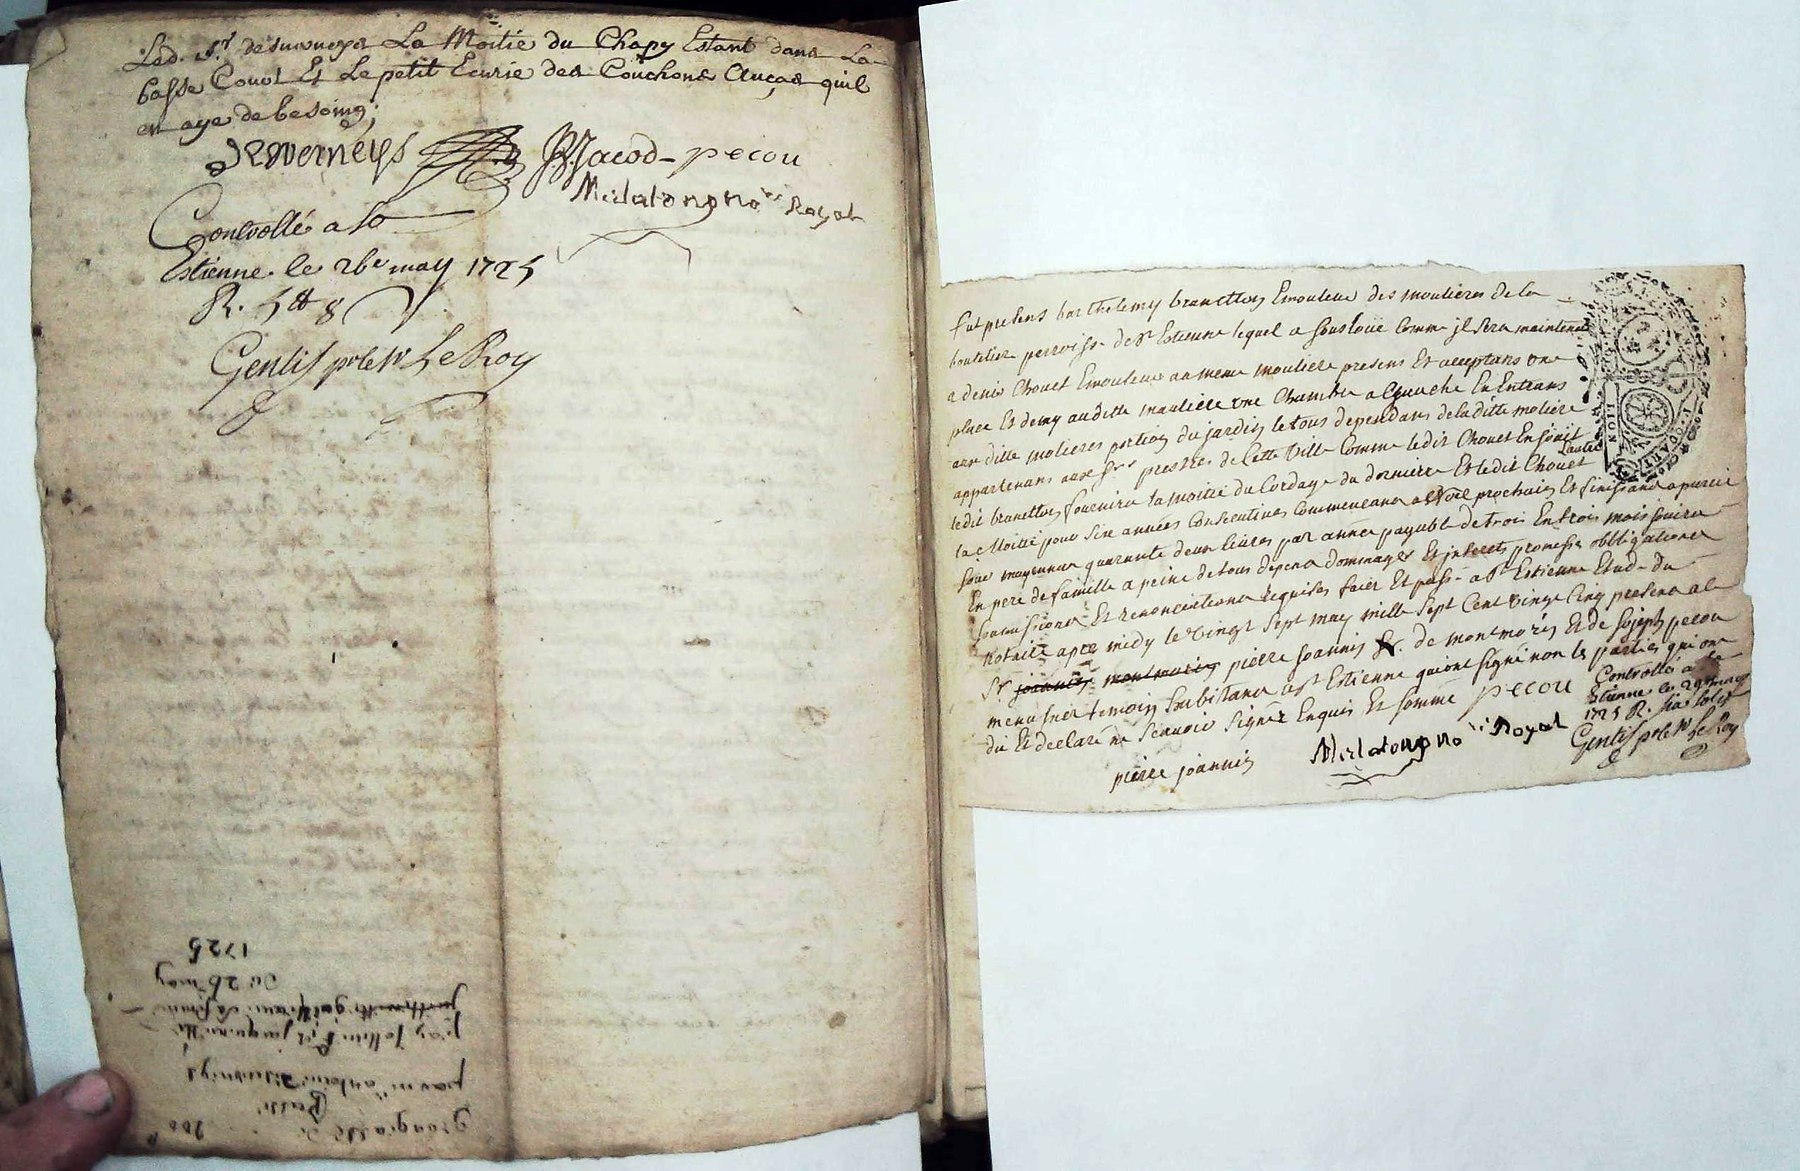 Led. Sr. deswerneys La Moitié du Chapy Estant dans La
basse Court Et Le petit Ecurie des Couchons Aucas quil
en aye de besoing;
deswerneys Jacod pecou
Merlatong no.re Royal
Controllé a St
Estienne le 26e may 1725
R. 5tt 8
Gentil pr le Nt Le Roy
1725
Du 26 may
par
grangeasse
fut presens barthelemy brunetton Emouleur des moulieres de la
boutelier perroisse de St Estienne lequel a souslouë comme jl sera maintenu
a denis Chouet Emouleur au meme mouliere presens Et acceptans une
place Et demy auditte mauliere une Chambre a Gauche En Entrans
aux ditte molieres portion du jardin le tous dependans de la ditte moliere
appartenans aux srs prestres de Cette Ville Comme ledit Chouet En jouit
ledit brunetton fournira la moitié du Cordage du derniere Et ledit Chouet Lautre
la Moitié pour six années Consecutives Commenceans prochain Et finissans a pareil
jour moyennan quarante deux livres par année payable de trois En trois mois jouira
En pere de famille a peine de tous depens dommages Et interets promesses obbligations
soumissions Et renonciations requises fait Et passé a St Estienne Etude du
Notaire apre midy le vingt sept may mille sept Cent vingt Cinq presens a le
Sr joannis montmorin pierre joannis Sr. de montmorin Et de Sojeph pecou
menusier temoin habitans a St Estienne qui ont signé non les parties qui on
dit Et declaré ne scavoir signer Enquis Et sommé pecou
pierre joannin Merlatong no.re Royal
Controllé a St
Estienne le 29 may
1725 R. six sols
Gentil pr le Nt Le Roy
LION